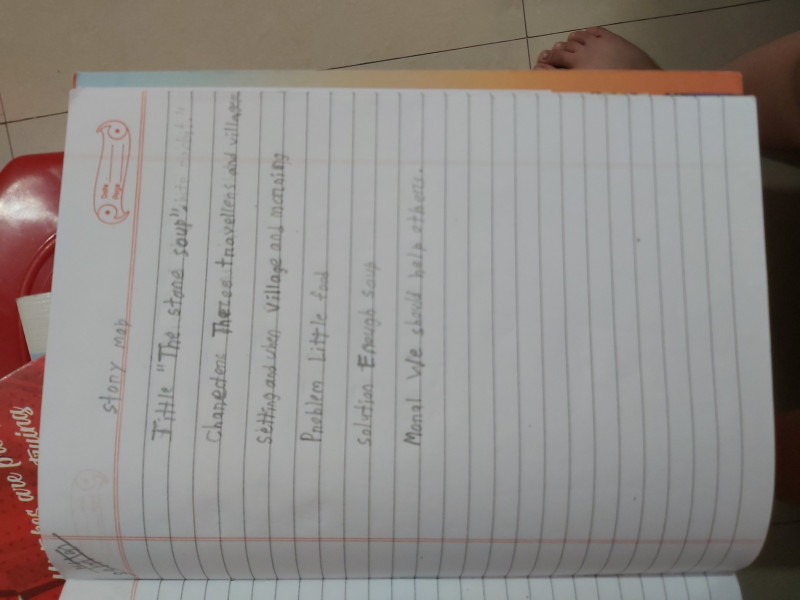 Date
Page
story map
Tittle "The stone soup"
Charectens Theree travellens and villages
setting and when village and morning
Problem Little food
solution Enough soup
Monal We should help others.
are